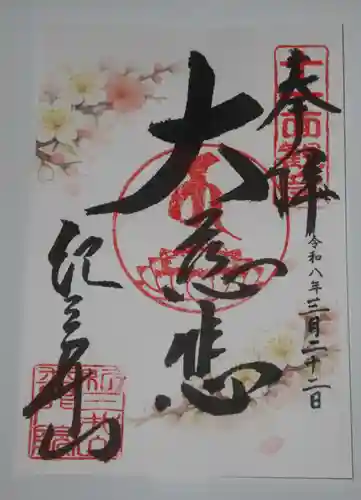 奉拝
令和八年三月二十二日
大慈悲
紀三井山